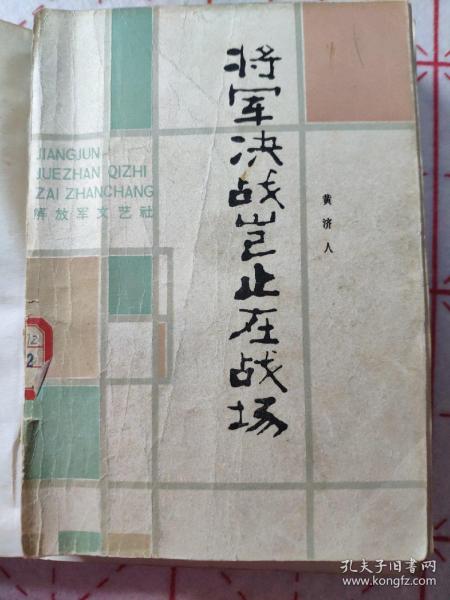 将军决战岂止在战场
黄济人
JIANGJUN
JUEZHAN QIZHI
ZAI ZHANCHANG
解放军文艺社
12
2
孔夫子旧书网
www.kongfz.com